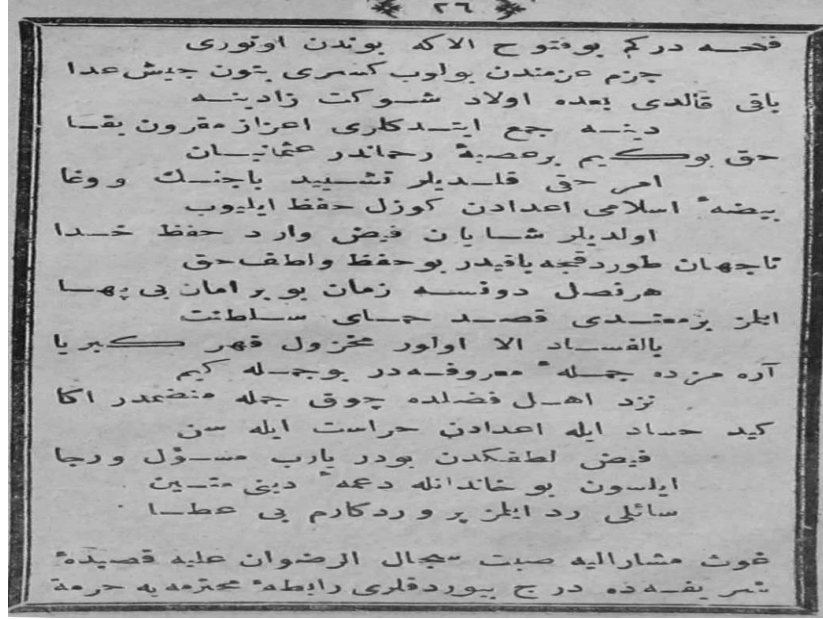 ٢٦
فتحه دركم بوفتوح الاكه بوندن اوتورى
جزم عزمندن بولوب كسرى بتون جيش عدا
باقى قالدى بعده اولاد شوكت زادينه
دينه جمع ايتدكلرى اعزاز مقرون بقا
حق بوكيم برعصبهٔ رحماندر عثمانيان
امر حقى قلديلر تشييد باجنك ووغا
بيضهٔ اسلامى اعدادن كوزل حفظ ايليوب
اولديلر شايان فيض وارد حفظ خدا
تاجهان طوردقجه باقيدر بوحفظ ولطف حق
هرنصل دونسه زمان بو بر امان بى بها
ايلمز برمعتدى قصد حماى سلطنت
بالفساد الا اولور مخزول قهر كبريا
آره مزده جملهٔ معروفه در بوجمله كيم
نزد اهل فضلده چوق جمله متضمدر اكا
كيد حساد ايله اعدادن حراست ايله سن
فيض لطفكدن بودر يارب مسؤل ورجا
ايلسون بو خاندانله دعمهٔ دينى متين
سائلى رد ايلمز پروردكارم بى عطا
غوث مشاراليه صبت سجال الرضوان عليه قصيدهٔ
شريفه ده درج بيوردقلرى رابطهٔ محترمه يه حرمة